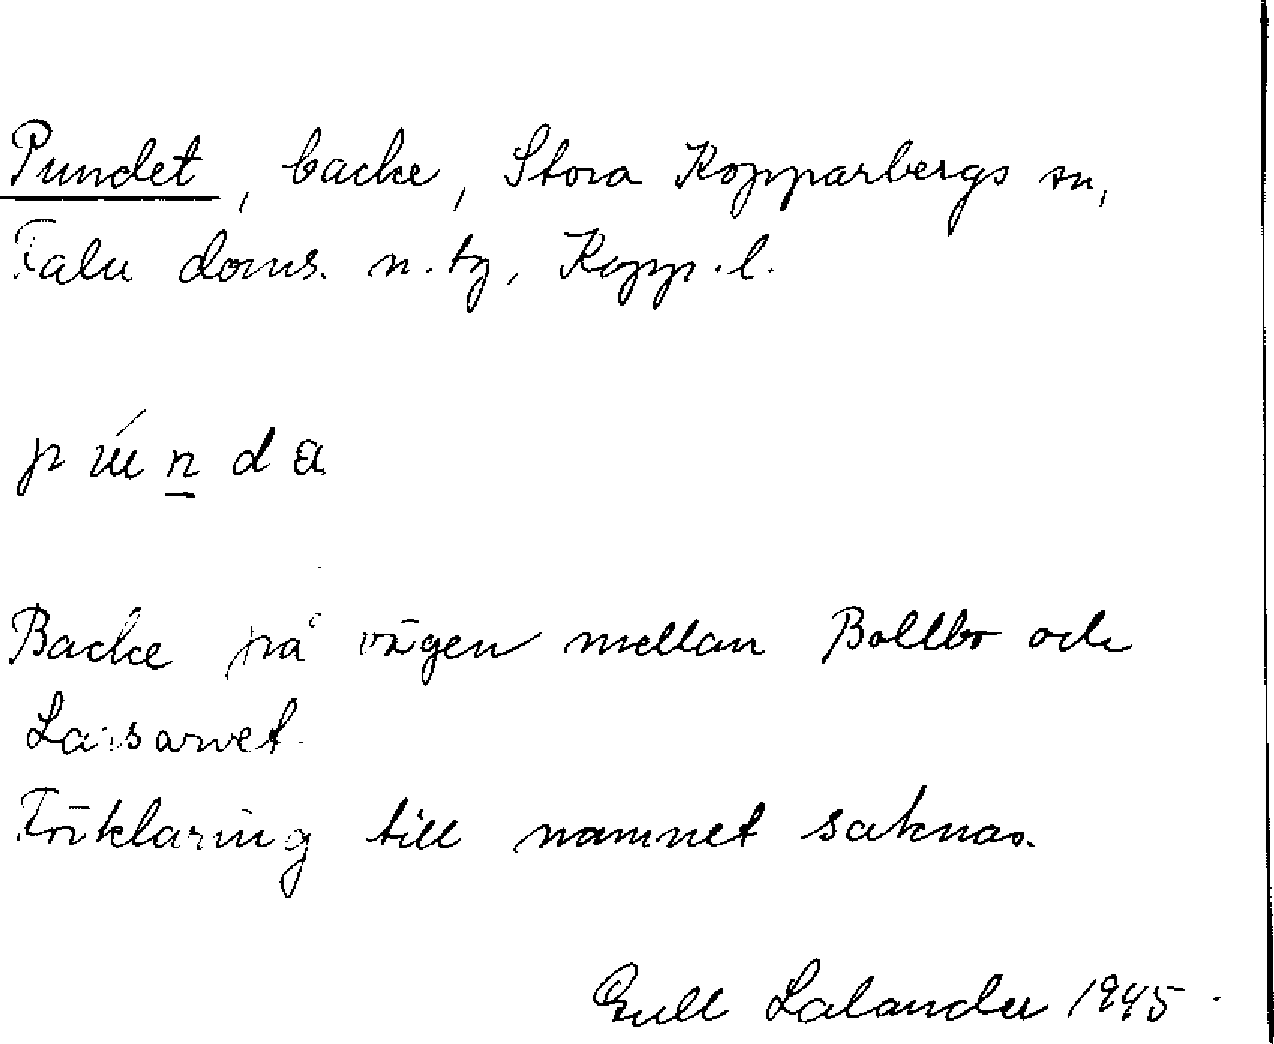 Pundet, backe, Stora Kopparbergs sn,
Falu doms. n. tg, Kopp. l.
púnda
Backe på vägen mellan Bollbo och
Larsarvet.
Förklaring till namnet saknas.
Gull Lalander 1945.